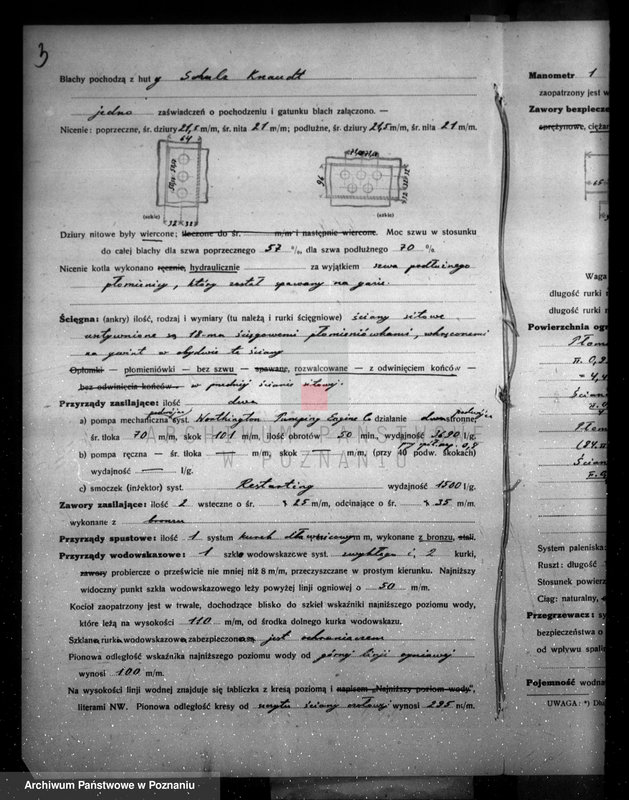 3
Blachy pochodzą z huty Schulz Knaudt
jedno zaświadczeń o pochodzeniu i gatunku blach załączono. —
Nicenie: poprzeczne, śr. dziury 21,5 m/m, śr. nita 21 m/m; podłużne, śr. dziury 21,5 m/m, śr. nita 21 m/m.
64
32
32
(szkic)
96
(szkic)
Dziury nitowe były wiercone; tłoczone do śr. m/m i następnie wiercone. Moc szwu w stosunku
do całej blachy dla szwa poprzecznego 57 %, dla szwa podłużnego 70 %.
Nicenie kotła wykonano ręcznie, hydraulicznie za wyjątkiem szwa podłużnego
płomienicy, który został spawany na gazie.
Ścięgna: (ankry) ilość, rodzaj i wymiary (tu należą i rurki ścięgniowe) ściany sitowe
usztywnione są 18-ma ścięgowemi płomieniówkami, wkręconemi
na gwint w obydwie te ściany
Opłomki — płomieniówki — bez szwu — spawane, rozwalcowane — z odwinięciem końców —
bez odwinięcia końców. — w przedniej ścianie sitowej.
Przyrządy zasilające: ilość dwa
a) pompa mechaniczna syst. Worthington Pumping Engine Co działanie dwustronne,
śr. tłoka 70 m/m, skok 101 m/m, ilość obrotów 50 min., wydajność 3690 l/g.
b) pompa ręczna — śr. tłoka — m/m, skok — m/m, (przy 40 podw. skokach)
wydajność — l/g.
c) smoczek (inżektor) syst. Restarting wydzjność 1500 l/g.
Zawory zasilające: ilość 2 wsteczne o śr. 25 m/m, odcinające o śr. 35 m/m.
wykonane z bronzu
Przyrządy spustowe: ilość 1 system kurek dławicowy m, wykonane z bronzu, stali.
Przyrządy wodowskazowe: 1 szkło wodowskazowe syst. zwykłego i 2 kurki,
zawory probiercze o prześwicie nie mniej niż 8 m/m, przeczyszczane w prostym kierunku. Najniższy
widoczny punkt szkła wodowskazowego leży powyżej linji ogniowej o 50 m/m.
Kocioł zaopatrzony jest w trwałe, dochodzące blisko do szkieł wskaźniki najniższego poziomu wody,
które leżą na wysokości 110 m/m, od środka dolnego kurka wodowskazu.
Szklana rurka wodowskazowa zabezpieczona jest ochraniaczem
Pionowa odległość wskaźnika najniższego poziomu wody od górnej linji ogniowej
wynosi 100 m/m.
Na wysokości linji wodnej znajduje się tabliczka z kresą poziomą i napisem „Najniższy poziom wody",
literami NW. Pionowa odległość kresy od szczytu ściany wynosi 295 m/m.
Manometr 1
zaopatrzony jest w
Zawory bezpiecze
sprężynowe, ciężar
65
Waga
długość rurki
długość rurki
Powierzchnia ogr
System paleniska:
Ruszt: długość
Stosunek powierz
Ciąg: naturalny,
Przegrzewacz: sy
bezpieczeństwa o
od wpływu spalin
Pojemność wodna
UWAGA: *) Dłu
ARCHIWUM PAŃSTWOWE
W POZNANIU
Archiwum Państwowe w Poznaniu